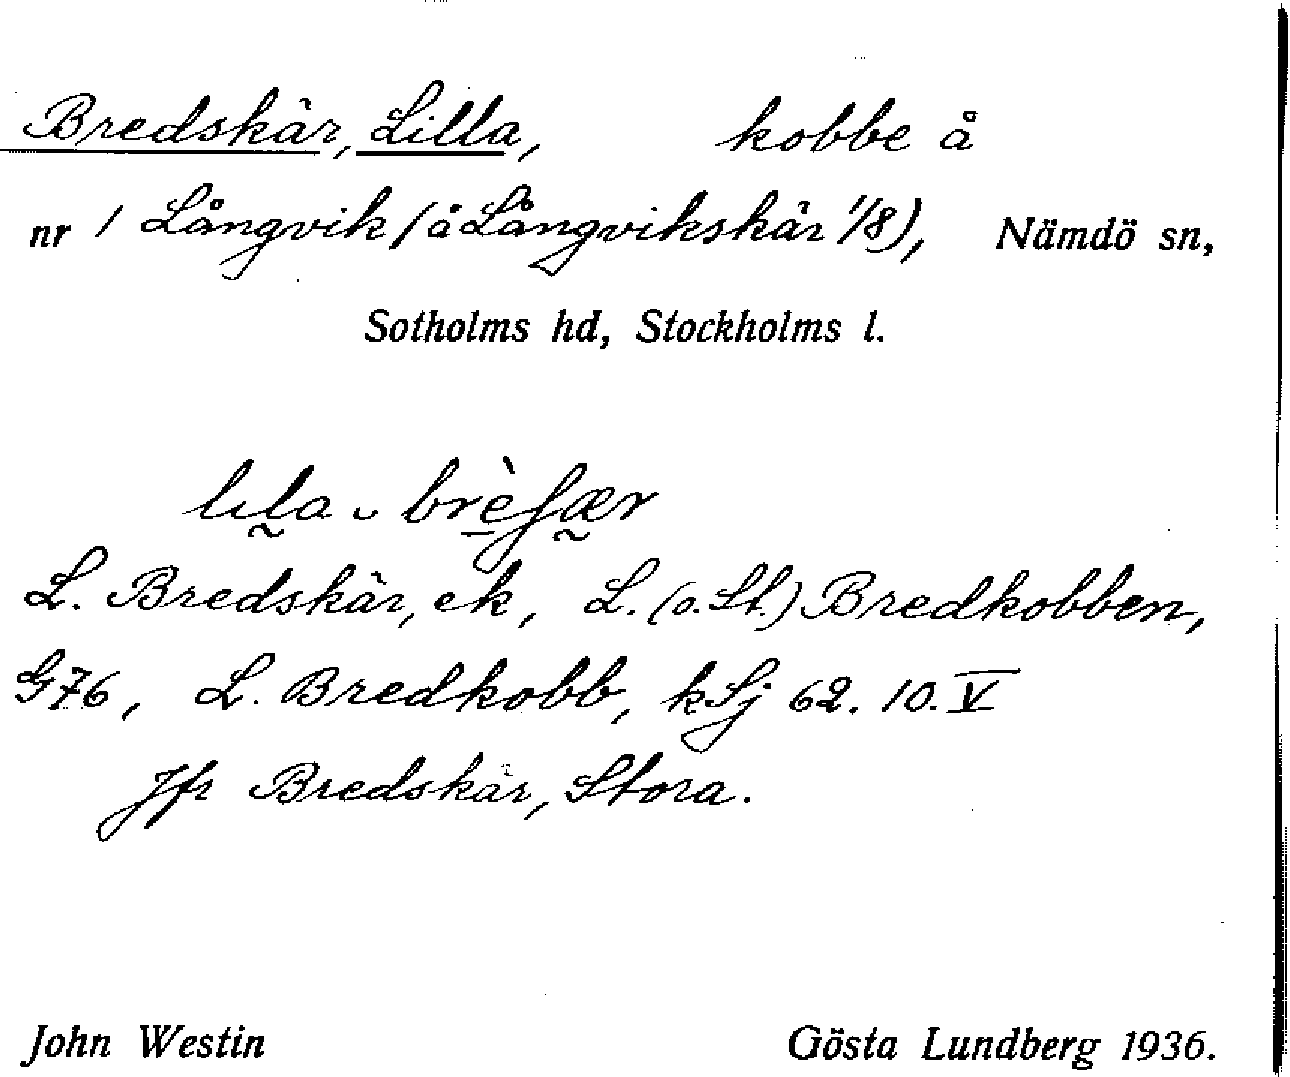 Bredskär, Lilla, kobbe å
nr 1 Långvik (å Långvikskär 1/8), Nämdö sn,
Sotholms hd, Stockholms l.
L. Bredskär, ek, L. (o. St.) Bredkobben,
G76, L. Bredkobb, kSj 62. 10. V
Jfr Bredskär, Stora.
John Westin Gösta Lundberg 1936.